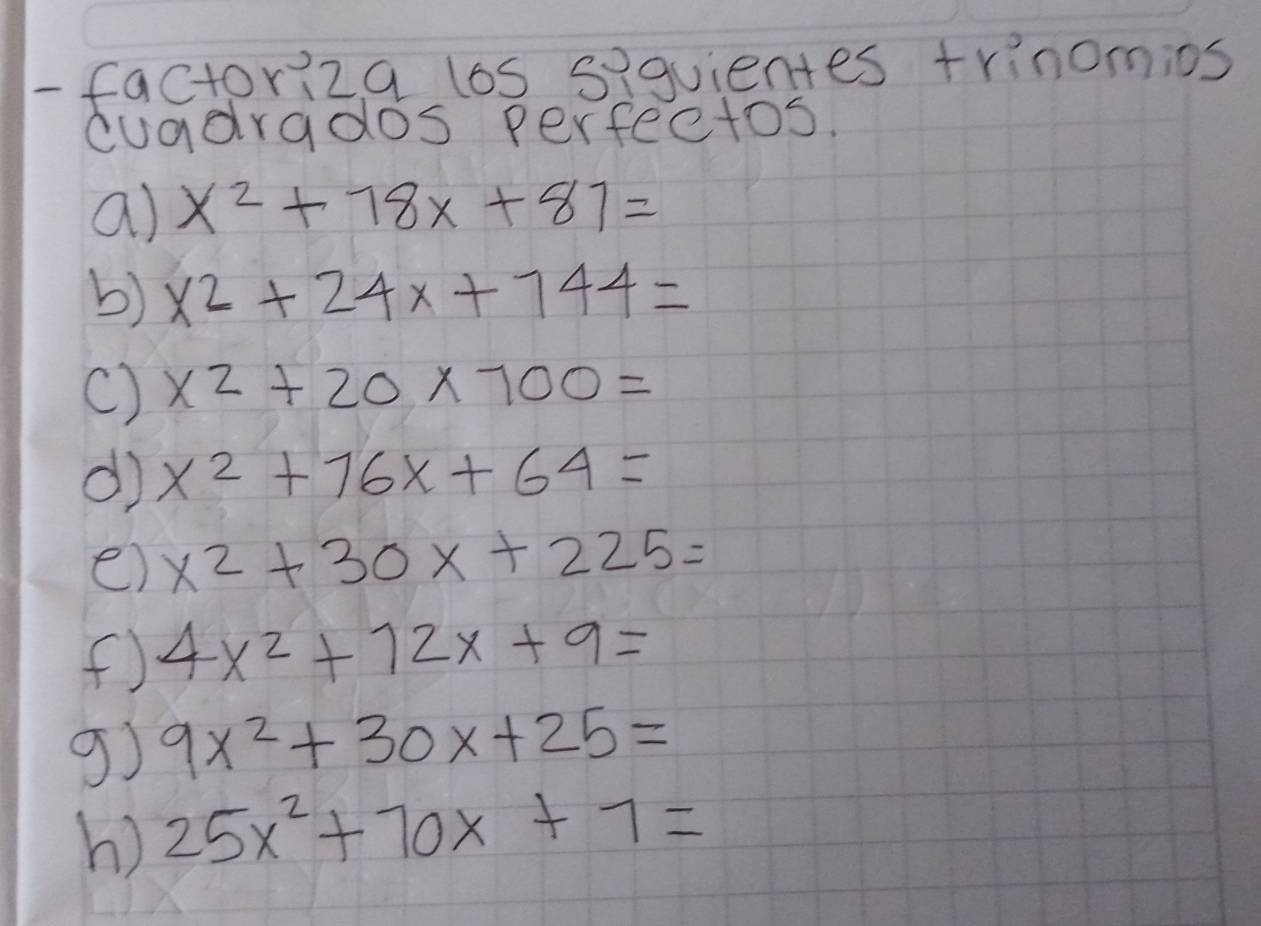 - factoriza los siguientes trinomios
cuadrados perfectos.
a) x² + 18x + 81 =
b) x2 + 24x + 144 =
c) x2 + 20 x 100 =
d) x2 + 16x + 64 =
e) x2 + 30x + 225 =
f) 4x² + 12x + 9 =
g) 9x² + 30x + 25 =
h) 25x² + 10x + 1 =